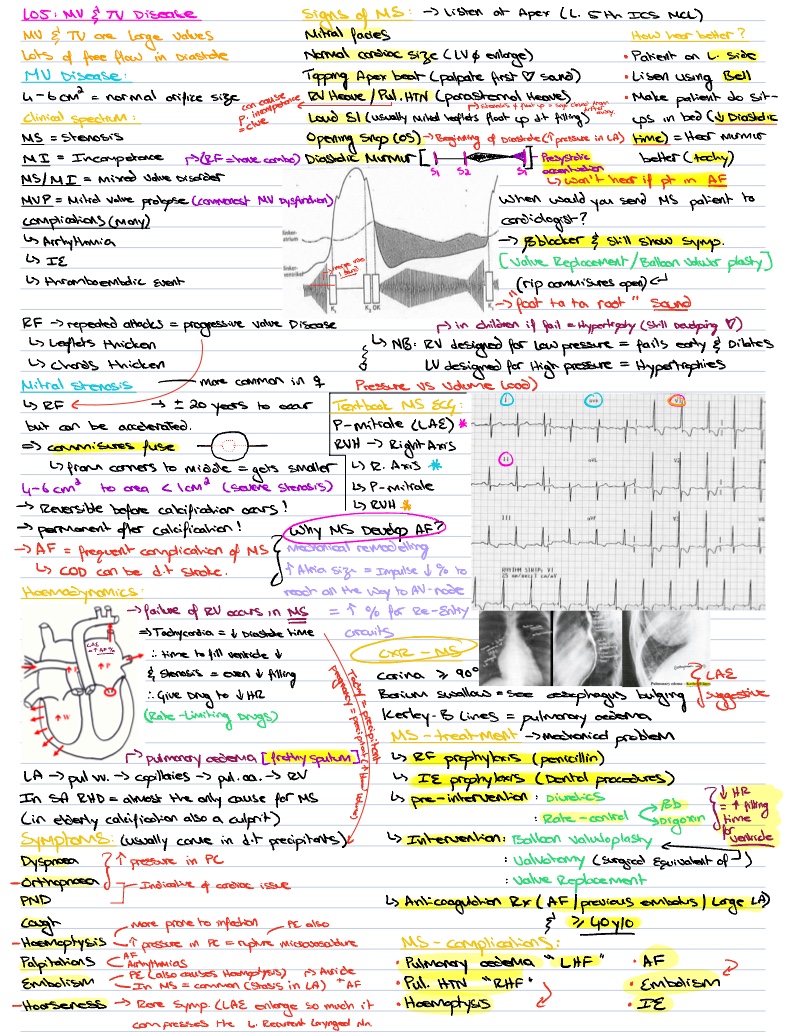 LO5: MV & TV Disease
MV & TV are large valves
Lots of free flow in Diastole
MV Disease:
4-6cm² = normal orifice size
can cause
P. incompetence
= clue
Clinical spectrum:
MS = Stenosis
MI = Incompetence
(RF = have combo)
MS/MI = Mixed valve Disorder
MVP = Mitral valve prolapse (commonest MV Dysfunction)
Complications (Many)
↳ Arrhythmia
↳ IE
↳ thromboembolic event
RF → repeated attacks = progressive valve Disease
↳ Leaflets thicken
↳ Chords thicken
Mitral Stenosis — more common in ♀
↳ RF → ± 20 years to occur
but can be accelerated.
⇒ commisures fuse
↳ from corners to middle = gets smaller
4-6cm² to area < 1cm² (severe stenosis)
→ Reversible before calcification occurs!
→ permanent after calcification!
→ AF = frequent complication of MS
↳ COD can be d.t stroke.
Haemodynamics:
→ failure of RV occurs in MS
⇒ Tachycardia = ↓ Diastole time
∴ time to fill ventricle ↓
& Stenosis = even ↓ filling
∴ Give Drug to ↓ HR
(Rate-Limiting Drugs)
Tachy = precipitant
pregnancy = precipitant (↑ blood volume)
pulmonary oedema [frothy sputum]
LA → pul vv. → capillaries → pul. aa. → RV
In SA RHD = almost the only cause for MS
(in elderly calcification also a culprit)
Symptoms: (usually come in d.t precipitants)
Dyspnoea
↑ pressure in PC
Orthopnoea
Indicative of cardiac issue
PND
Cough
More prone to infection
PE also
Haemoptysis
↑ pressure in PC = rupture microvasculature
Palpitations
AF
Arrhythmias
Embolism
PE (also causes Haemoptysis)
In MS = common (stasis in LA) + AF
Hoarseness → Rare Symp. (LAE enlarge so much it
compresses the L. Recurrent Laryngeal Nn.
Signs of MS: → Listen at Apex (L. 5th ICS MCL)
Mitral facies
Normal cardiac size (LV ø enlarge)
Tapping Apex beat (palpate first ♡ sound)
RV Heave / Pul. HTN (parasternal Heave)
Loud S1 (usually mitral leaflets float up d.t filling)
Opening Snap (OS) → Beginning of Diastole (↑ pressure in LA)
Diastolic Murmur
S1 S2 S1
Presystolic
accentuation
↳ won't hear if pt in AF
How hear better?
• Patient on L. side
• Lisen using Bell
• Make patient do sit-
ups in bed (↓ Diastolic
time) = Hear murmur
better (tachy)
When would you send MS patient to
cardiologist?
→ βblocker & still show symp.
[Valve Replacement/Balloon valvuloplasty]
(rip commisures open)
→ "foot ta ta root" Sound
in children if fail = Hypertrophy (still developing ♡)
↳ NB: RV designed for low pressure = fails early & Dilates
LV designed for High pressure = Hypertrophies
Pressure vs Volume Load)
Textbook MS ECG:
P-mitrale (LAE) *
RVH → Right Axis
↳ R. Axis *
↳ P-mitrale
↳ RVH *
I
aVR
V1
II
aVL
V2
III
aVF
V3
RHYTHM STRIP: V1
25 mm/sec; 1 cm/mV
Why MS Develop AF?
Mechanical remodelling
↑ Atria size = Impulse ↓ % to
reach all the way to AV-node
= ↑ % for Re-entry
circuits
CXR - MS
Pulmonary edema
carina ≥ 90°
LAE
suggestive
Barium swallow = see oesophagus bulging
Kerley-B Lines = pulmonary oedema
MS - treatment → Mechanical problem
↳ RF prophylaxis (penicillin)
↳ IE prophylaxis (Dental procedures)
↳ pre-intervention : Diuretics
: Rate-control
Bb
Digoxin
↓ HR
= ↑ filling
time
for
ventricle
↳ Intervention: Balloon Valvuloplasty
: Valvotomy (surgical Equivalent of)
: Valve Replacement
↳ Anticoagulation Rx (AF/previous embolus/Large LA)
& ≥ 40y/o
MS-complications:
• Pulmonary oedema "LHF"
• AF
• Pul. HTN "RHF"
• Embolism
• Haemoptysis
• IE